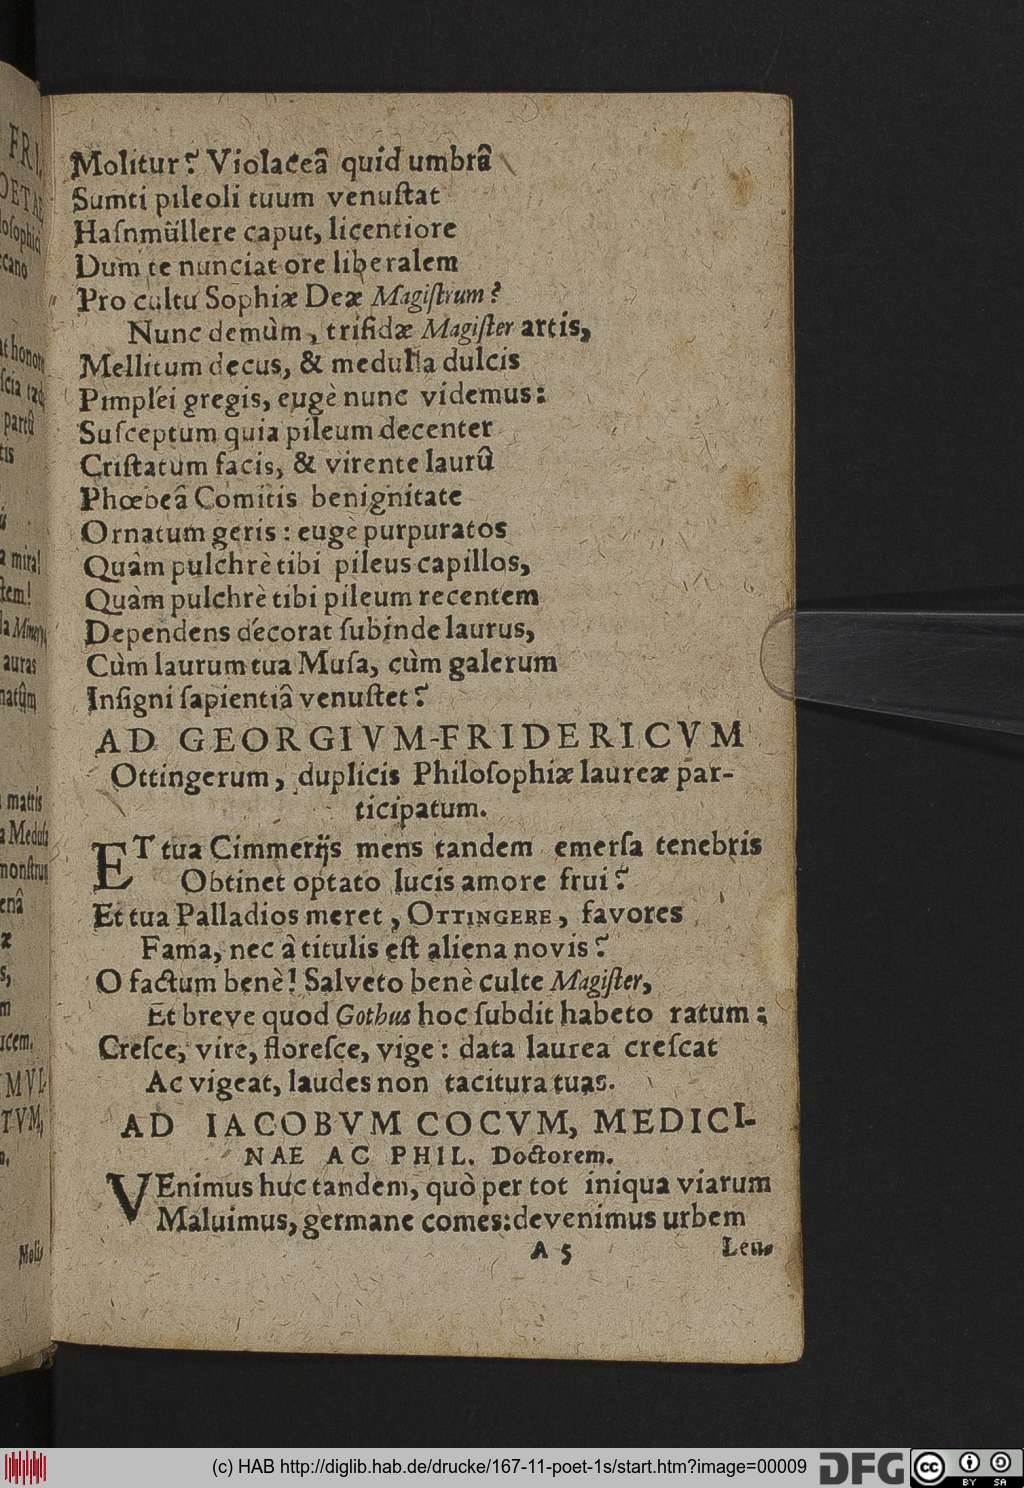 Molitur? Violaceâ quid umbrâ
Sumti pileoli tuum venuſtat
Haſnmüllere caput, licentiore
Dum te nunciat ore liberalem
Pro cultu Sophiæ Deæ Magiſtrum?
Nunc demùm, trifidæ Magiſter artis,
Mellitum decus, & medulla dulcis
Pimpléi gregis, eugè nunc videmus:
Suſceptum quia pileum decenter
Criſtatum facis, & virente laurû
Phœbeâ Comitis benignitate
Ornatum geris: eugè purpuratos
Quàm pulchrè tibi pileus capillos,
Quàm pulchrè tibi pileum recentem
Dependens décorat ſubinde laurus,
Cùm laurum tua Muſa, cùm galerum
Inſigni ſapientiâ venuſtet?
AD GEORGIVM-FRIDERICVM
Ottingerum, duplicis Philoſophiæ laureæ par-
ticipatum.
ET tua Cimmerijs mens tandem emerſa tenebris
Obtinet optato lucis amore frui?
Et tua Palladios meret, OTTINGERE, favores
Fama, nec à titulis eſt aliena novis?
O factum benè! Salveto benè culte Magiſter,
Et breve quod Gothus hoc ſubdit habeto ratum;
Creſce, vire, floreſce, vige: data laurea creſcat
Ac vigeat, laudes non tacitura tuas.
AD IACOBVM COCVM, MEDICI-
NAE AC PHIL. Doctorem.
VEnimus huc tandem, quò per tot iniqua viarum
Maluimus, germane comes: devenimus urbem
A 5 Leu-
(c) HAB http://diglib.hab.de/drucke/167-11-poet-1s/start.htm?image=00009
DFG
cc BY SA